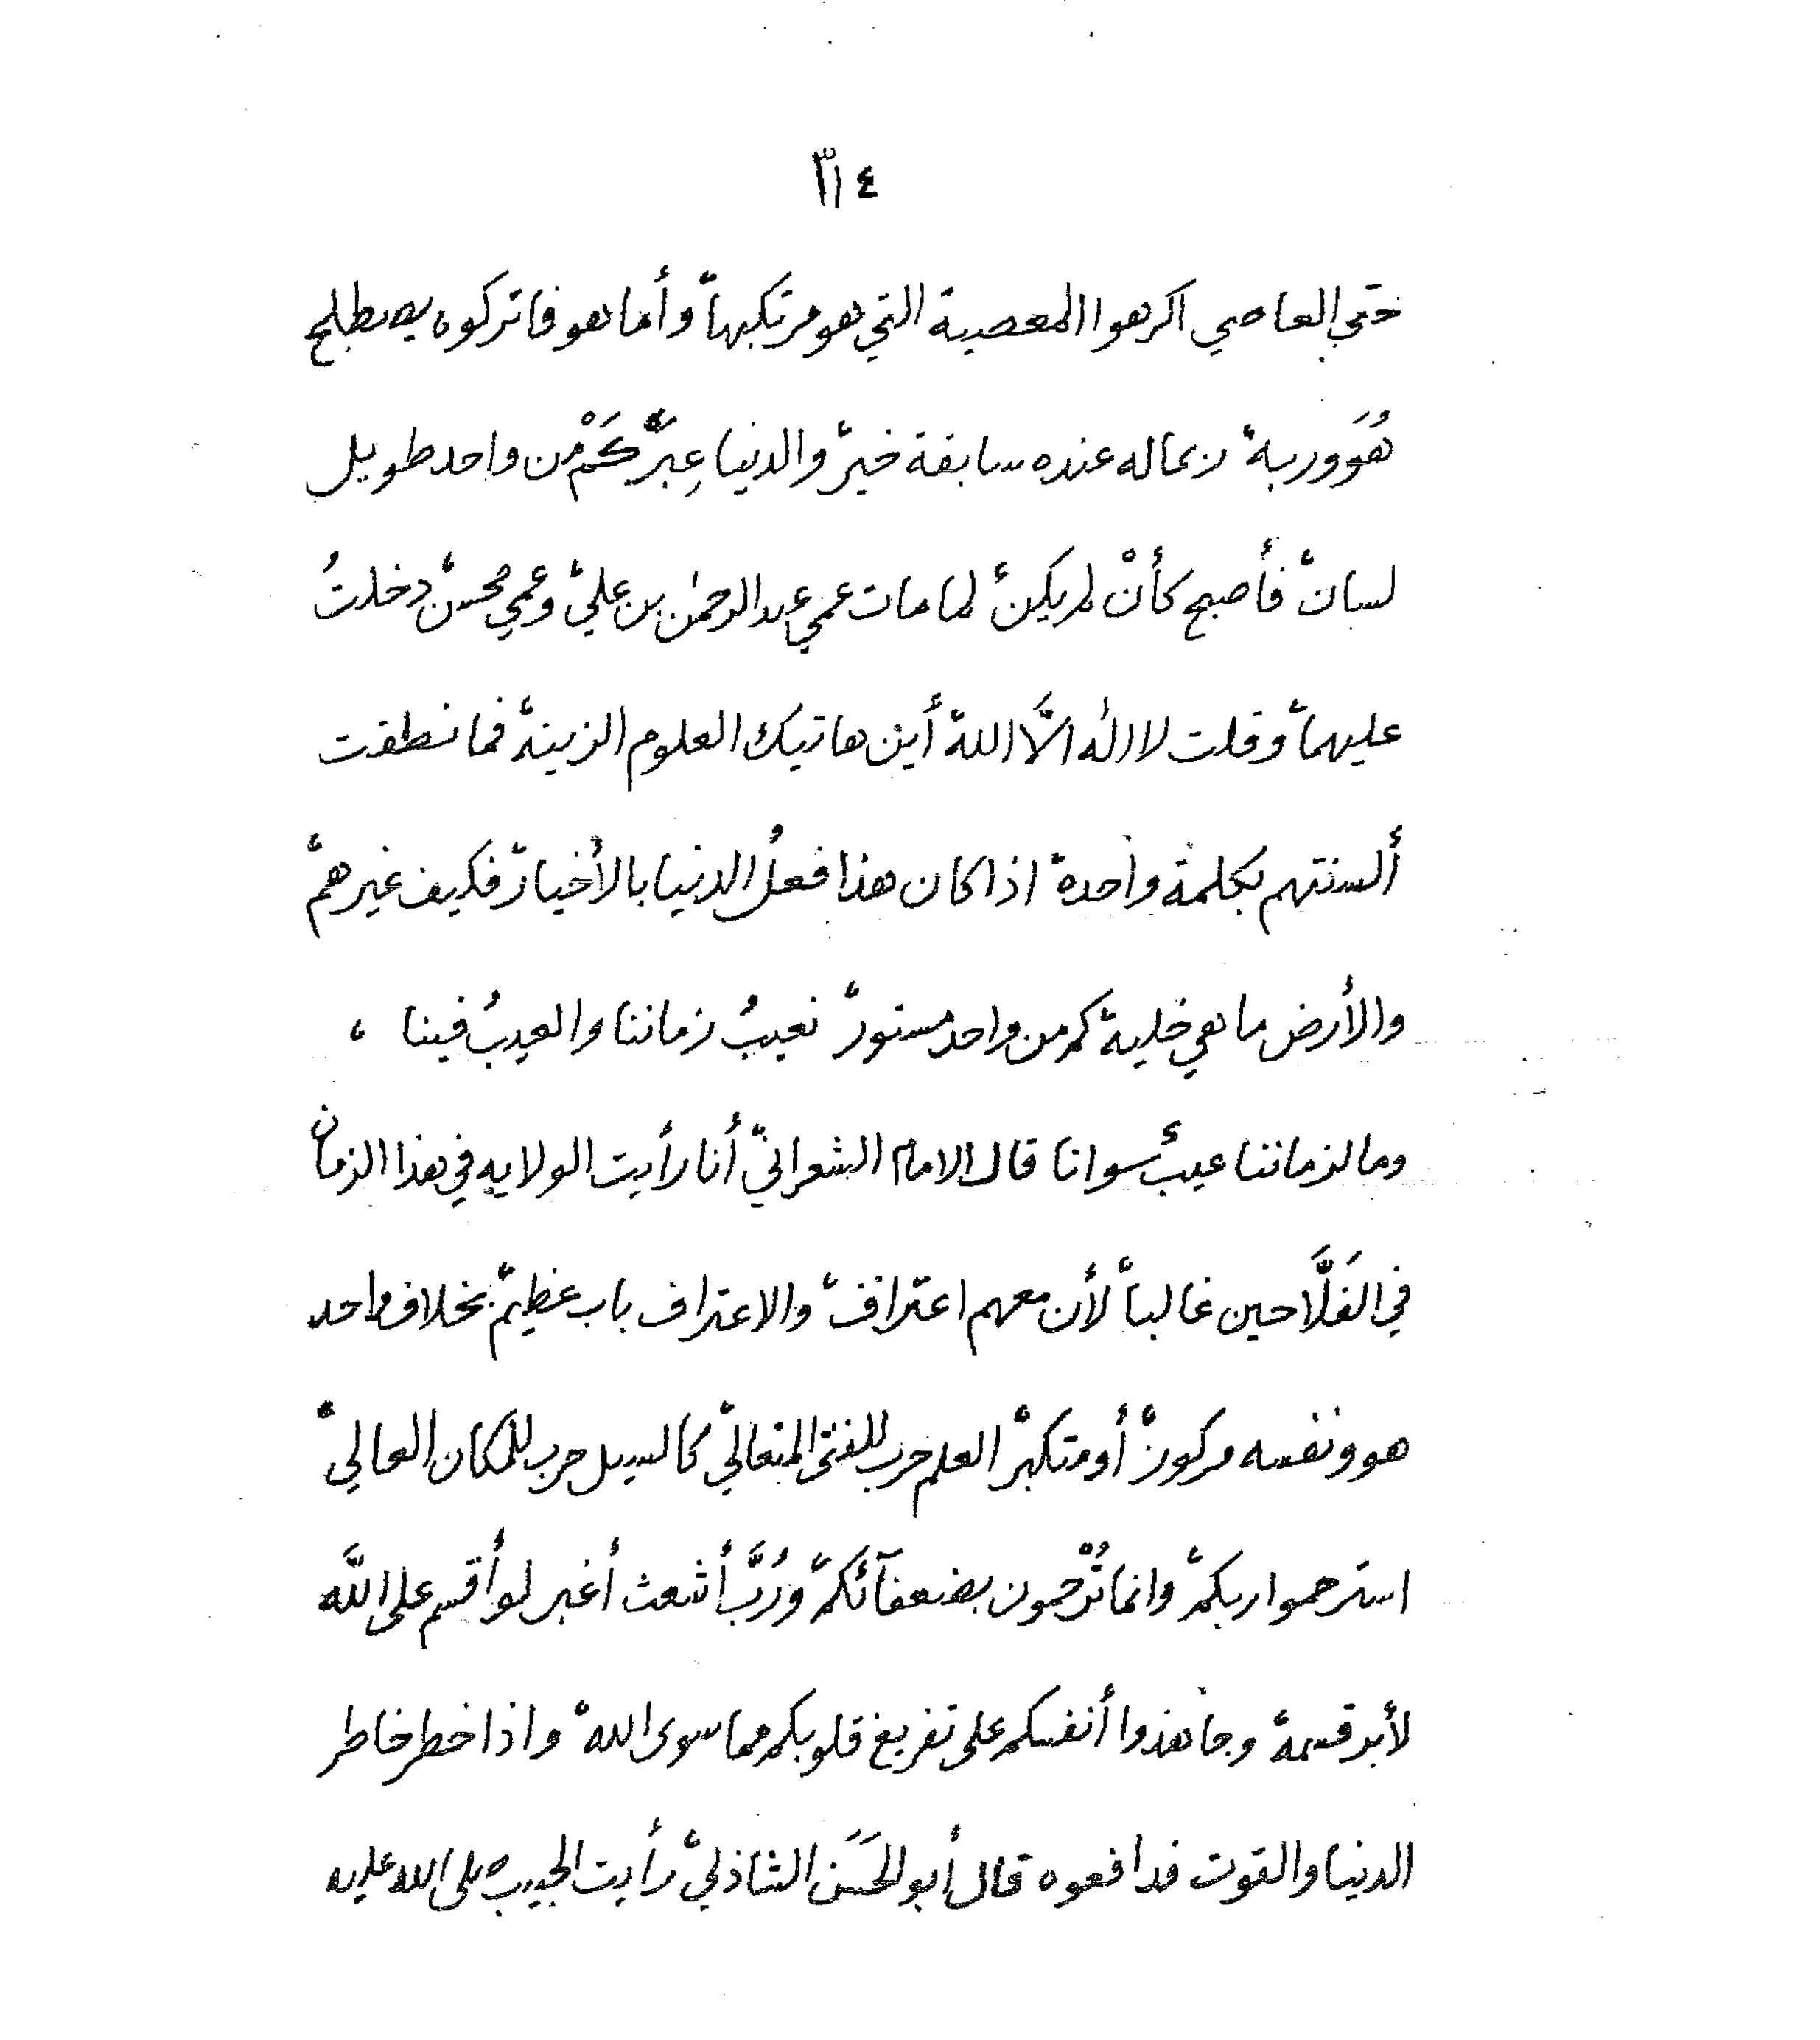 ٣١٤
حتى العاصي اكرهوا المعصية التي هو مرتكبها، وأما هو فاتركوه يصطلح
هُوَ وربه، ربما له عنده سابقة خير، والدنيا عِبَرٌ، كَمْ من واحد طويل
لسان، فأصبح كأنْ لم يكن، لما مات عمي عبد الرحمٰن بن علي، وعمي محسن، دخلتُ
عليهما، وقلت لا الٰه الَّا الله، أين هاتيك العلوم الزينه، فما نطقت
ألسنتهم بكلمة واحدة، اذا كان هذا فعلُ الدنيا بالأخيار، فكيف غيرهم،
والأرض ما هي خلية، كم من واحد مستور، نعيبُ زماننا والعيبُ فينا ،
وما لزماننا عيبٌ سوانا قال الامام الشعراني، أنا رأيت الولايه في هذا الزمان
في الفَلَّاحين غالباً، لأن معهم اعتراف، والاعتراف باب عظيم، بخلاف واحد
هو ونفسه مركوز، أو متكبر، العلم حرب للفتى المتعالي، كالسيل حرب للمكان العالي،
استرحموا ربكم، وانما تُرْحمون بضعفآئكم، ورُبَّ أشعث أغبر لو أقسم على اللَّه
لأبر قسمه، وجاهدوا أنفسكم على تفريغ قلوبكم مما سوى الله، واذا خطر خاطر
الدنيا والقوت فدافعوه قال أبو الحَسَن الشاذلي، رأيت الحبيب صلى الله عليه